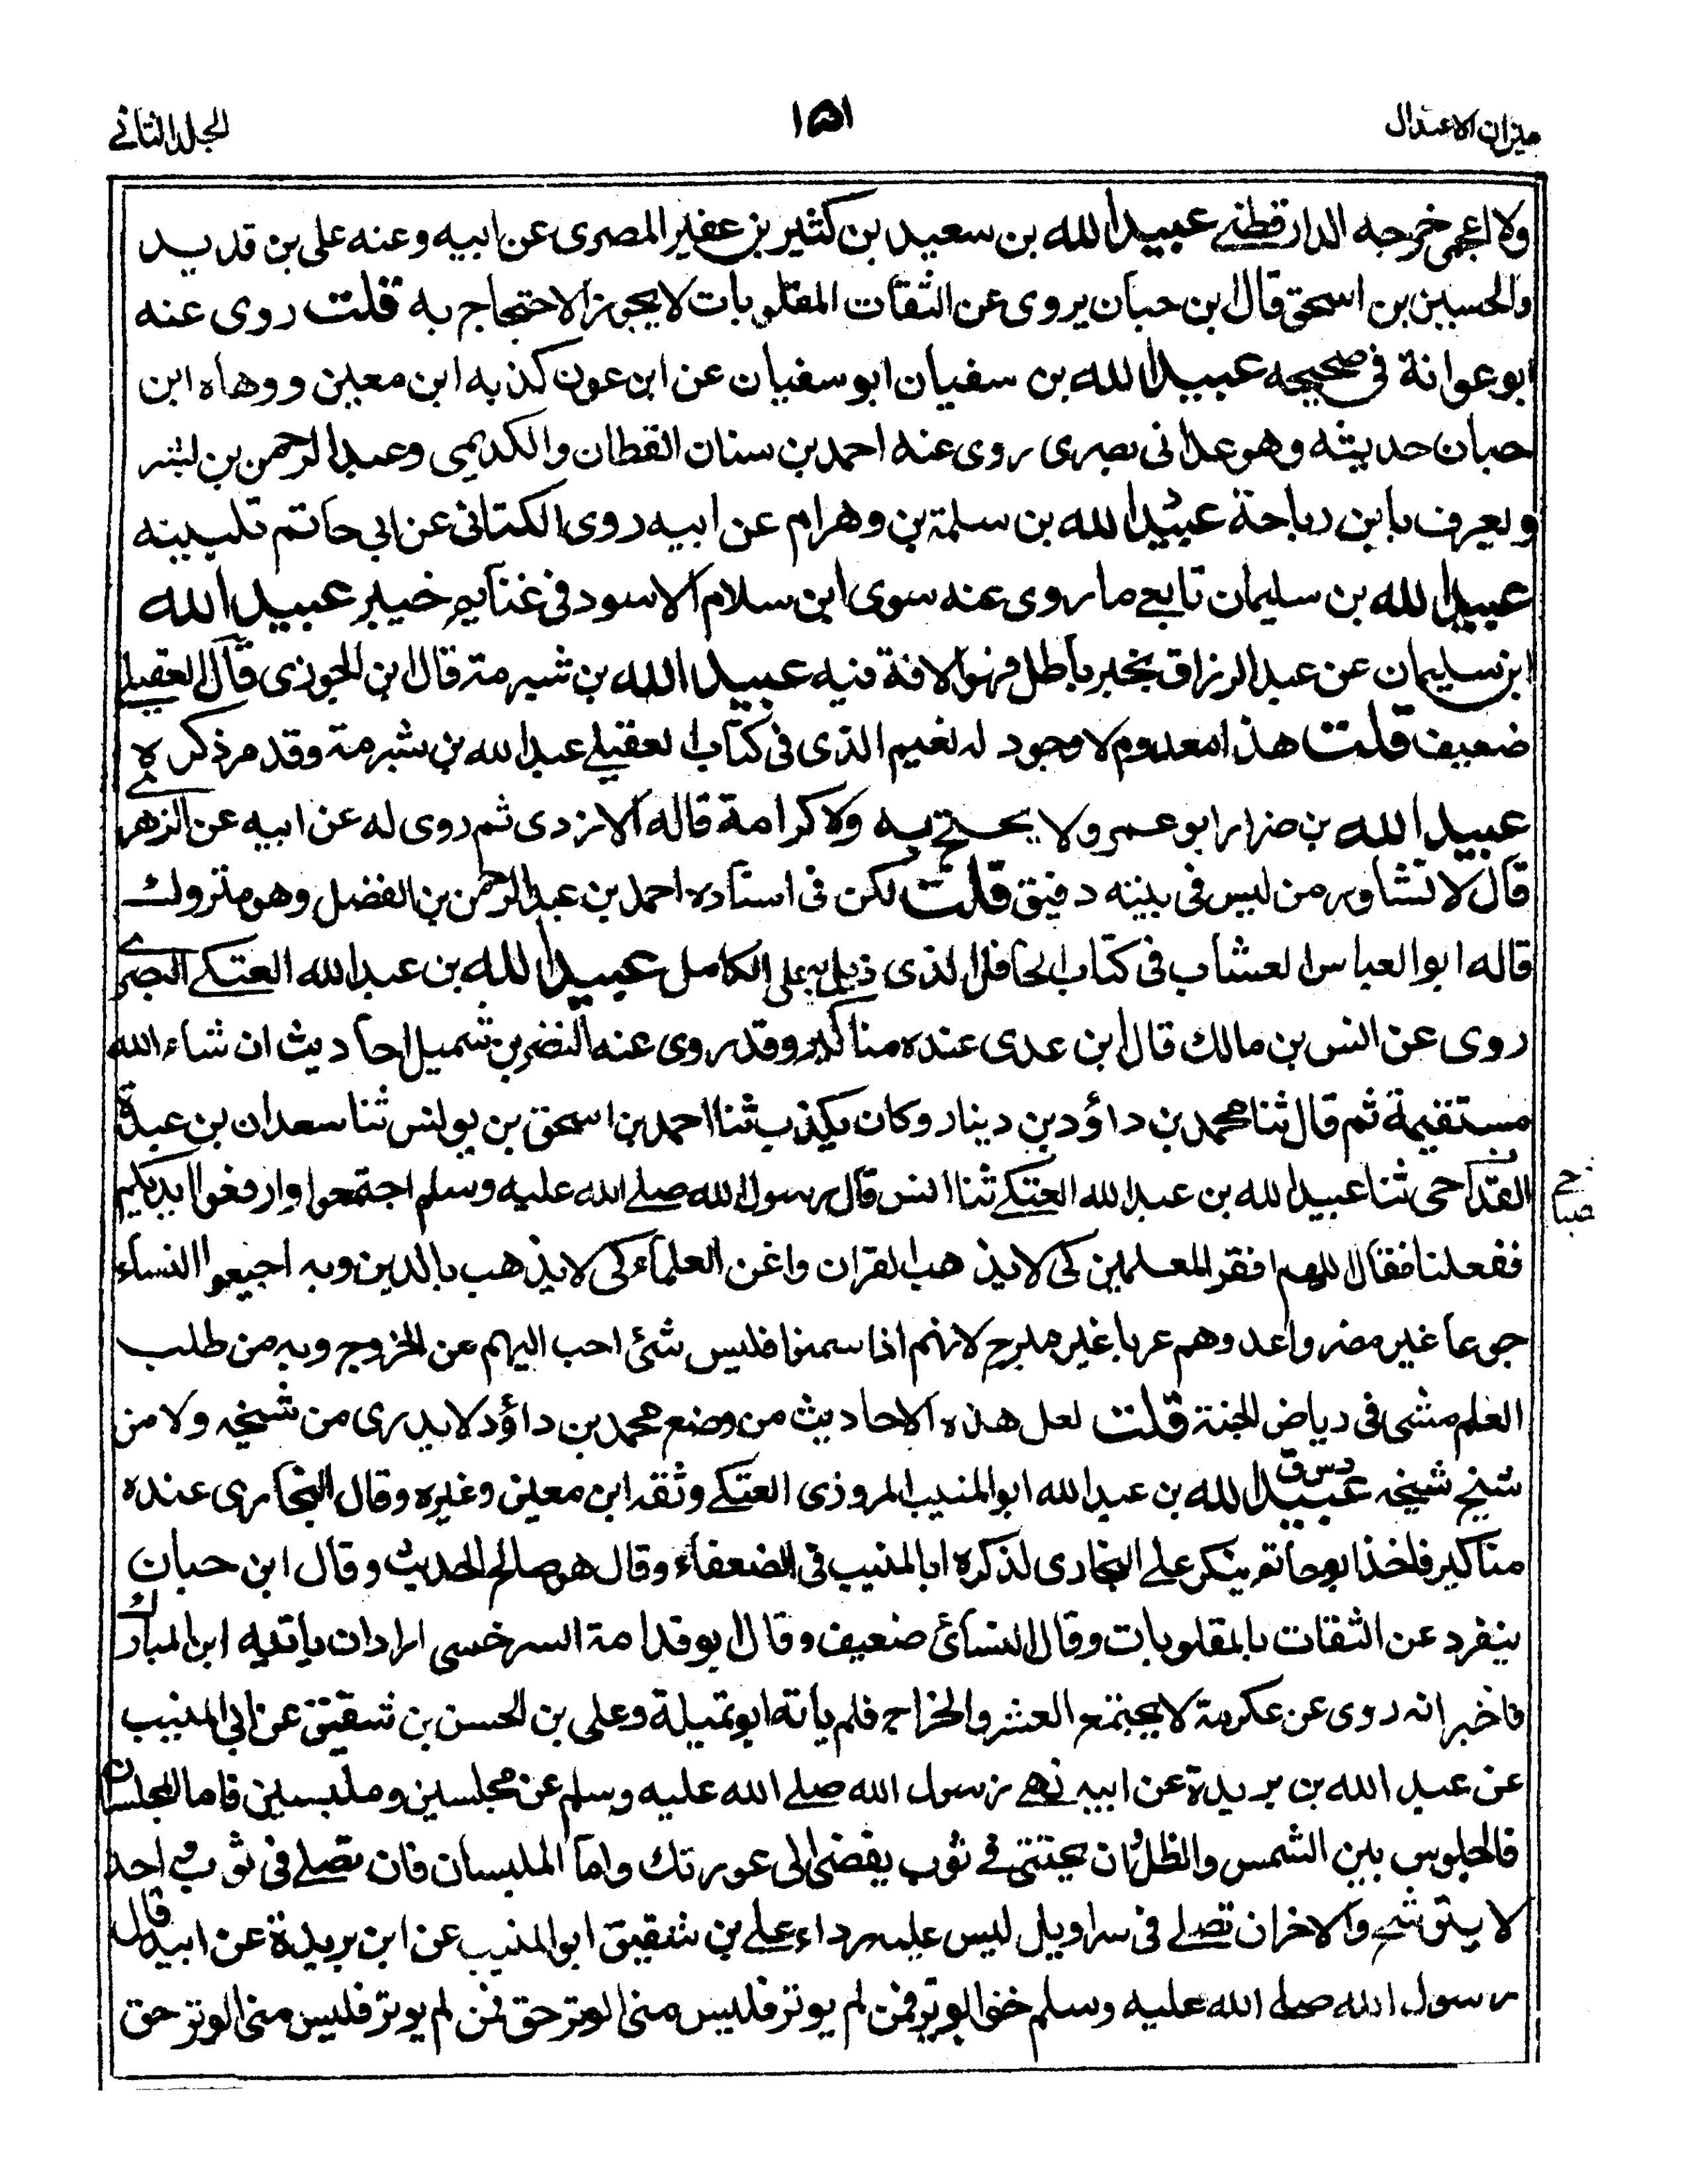 ميزان الاعتدال
١٥١
الجلد الثاني
ولا اعجمى خرجه الدارقطنے عبيد الله بن سعيد بن كثير بن عفير المصرى عن ابيه وعنه على بن قديد
والحسين بن اسحق قال ابن حبان يروى عن الثقات المقلوبات لا يجوز الاحتجاج به قلت روى عنه
ابو عوانة فى صحيحه عبيد الله بن سفيان ابو سفيان عن ابن عون كذبه ابن معين ووهاه ابن
حبان حديثه وهو عدانى بصرى روى عنه احمد بن سنان القطان والكديمى وعبد الرحمن بن بشر
ويعرف بابن رباحة عبيد الله بن سلمة بن وهرام عن ابيه روى الكتانى عن ابي حاتم تليينه
عبيد الله بن سليمان تابعے ما روى عنه سوى ابن سلام الاسود فى غنايم خيبر عبيد الله
ابن سليمان عن عبد الرزاق بخبر باطل فهو الافة فيه عبيد الله بن شبرمة قال ابن الجوزى قال العقيلے
ضعيف قلت هذا معدوم لا وجود له نعيم الذى فى كتاب العقيلے عبد الله بن شبرمة وقد مر ذكره
عبيد الله بن ضرار ابو عمرو لا يحتج به ولا كرامة قاله الازدى ثم روى له عن ابيه عن الزهرے
قال لا تشاور من ليس فى بيته دقيق قلت لكن فى اسناده احمد بن عبد الرحمن بن الفضل وهو متروك
قاله ابو العباس العشاب فى كتاب الحافل الذى ذيل به على الكامل عبيد الله بن عبد الله العتكے البصرے
روى عن انس بن مالك قال ابن عدى عنده مناكير وقد روى عنه النضر بن شميل احاديث ان شاء الله
مستقيمة ثم قال ثنا محمد بن داؤد بن دينار وكان يكذب ثنا احمد بن اسحق بن يونس ثنا سعدان بن عبدة
القداحى ثنا عبيد الله بن عبد الله العتكے ثنا انس قال رسول الله صلے الله عليه وسلم اجتمعوا وارفعوا ايديكم
ففعلنا فقال اللهم افقر المعلمين كى لا يذهب القران واغن العلماء كى لا يذهب بالدين وبه اجيعوا النساء
جوعا غير مضر واعدوهم عريا غير مبرح لانهم اذا سمنوا فليس شئ احب اليهم عن الخروج وبه من طلب
العلم مشى فى رياض الجنة قلت لعل هذه الاحاديث من وضع محمد بن داؤد لا يدرى من شيخه ولا من
شيخ شيخه دس ق عبيد الله بن عبد الله ابو المنيب المروزى العتكے وثقه ابن معين وغيره وقال البخارى عنده
مناكير فاخذ ابو حاتم ينكر علے البخارى لذكره ابا المنيب فى الضعفاء وقال هو صالح الحديث وقال ابن حبان
ينفرد عن الثقات بالمقلوبات وقال النسائ ضعيف وقال ابو قدامة السرخسى اراد ان ياتيه ابن المبارك
فاخبر انه روى عن عكرمة لا يجتمع العشر والخراج فلم ياته ابو تميلة وعلى بن الحسن بن شقيق عن ابى المنيب
عن عبد الله بن بريدة عن ابيه نهے رسول الله صلے الله عليه وسلم عن مجلسين وملبسين فاما المجلسان
فالجلوس بين الشمس والظل وان يحتبى فے ثوب يفضى الى عورتك واما الملبسان فان تصلے فى ثوب واحد
لا يتوشح والاخر ان تصلے فى سراويل ليس عليه رداء علے بن شقيق ابو المنيب عن ابن بريدة عن ابيه قال
رسول الله صلے الله عليه وسلم حق الوتر فمن لم يوتر فليس منى الوتر حق فمن لم يوتر فليس منى الوتر حق